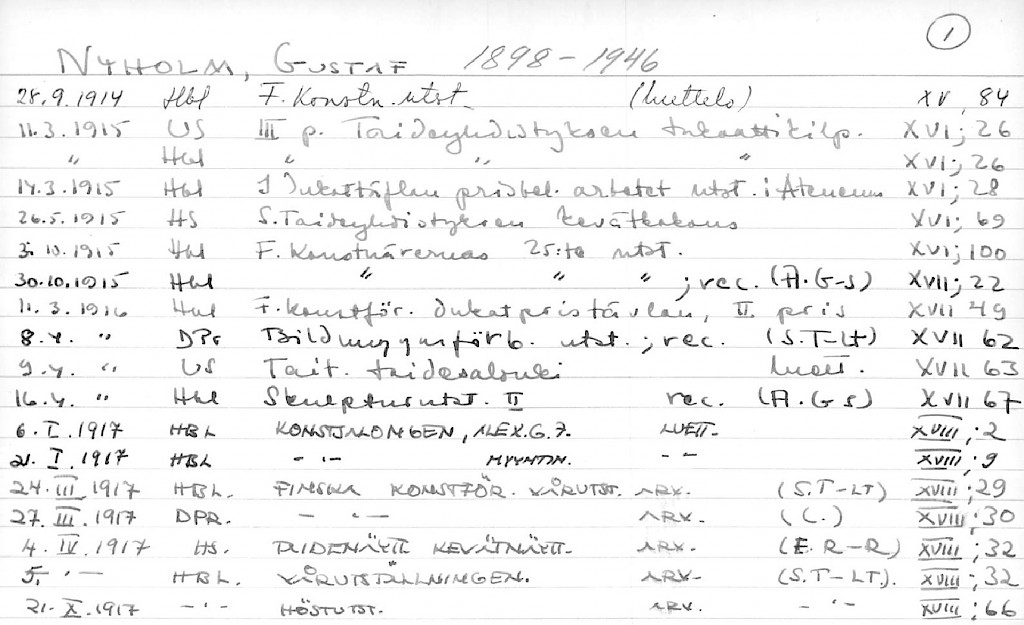 1
NYHOLM, GUSTAF 1898-1946
28.9.1914 Hbl F. Konstn. utst. (luettelo) XV, 84
11.3.1915 US III p. Taideyhdistyksen dukaattikilp. XVI; 26
" Hbl " " " XVI; 26
14.3.1915 Hbl I Dukattäflan prisbel. arbetet utst. i Ateneum XVI; 28
26.5.1915 HS S. Taideyhdistyksen kevätkokous XVI; 69
3.10.1915 Hbl F. Konstnärernas 25:te utst. XVI; 100
30.10.1915 Hbl " " " ; rec. (A.G-s) XVII; 22
11.3.1916 Hbl F. konstför. dukatpristävlan, II pris XVII 49
8.4. " DPr Bildhuggarförb. utst. ; rec. (S.T-lt) XVII 62
9.4. " US Tait. taidesalonki luett. XVII 63
16.4. " Hbl Skulpturutst. II rec. (A.G-s) XVII 67
6.I.1917 HBL KONSTSALONGEN, ALEX.G.7. LUETT. XVIII; 2
21.I.1917 HBL - " - MYYNTIN. - " - XVIII; 9
24.III.1917 HBL. FINSKA KONSTFÖR. VÅRUTST. ARV. (S.T-LT) XVIII; 29
27.III.1917 DPR. - " - ARV. (C.) XVIII; 30
4.IV.1917 HS. TAIDENÄYTT. KEVÄTNÄYTT. ARV. (E.R-R) XVIII; 32
5. - " - HBL. VÅRUTSTÄLLNINGEN. ARV. (S.T-LT). XVIII; 32
21.X.1917 - " - HÖSTUTST. ARV. - " - XVIII; 66